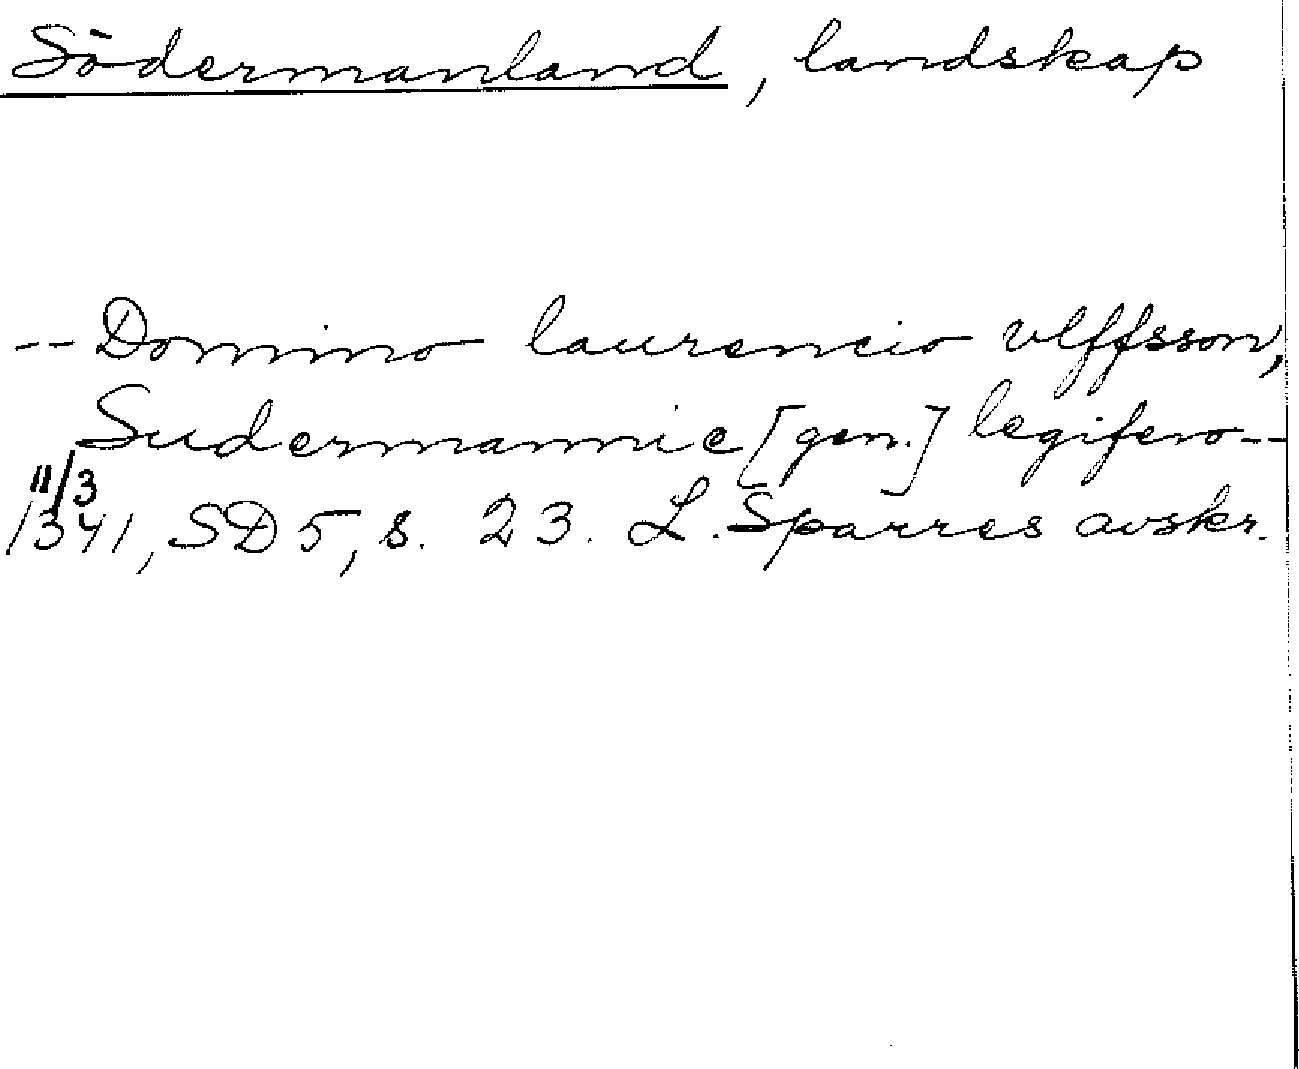 Södermanland, landskap
-- Domino laurencio vlffsson,
Sudermannie [gen.] legifero --
11/3
1341, SD 5, s. 23. L. Sparres avskr.